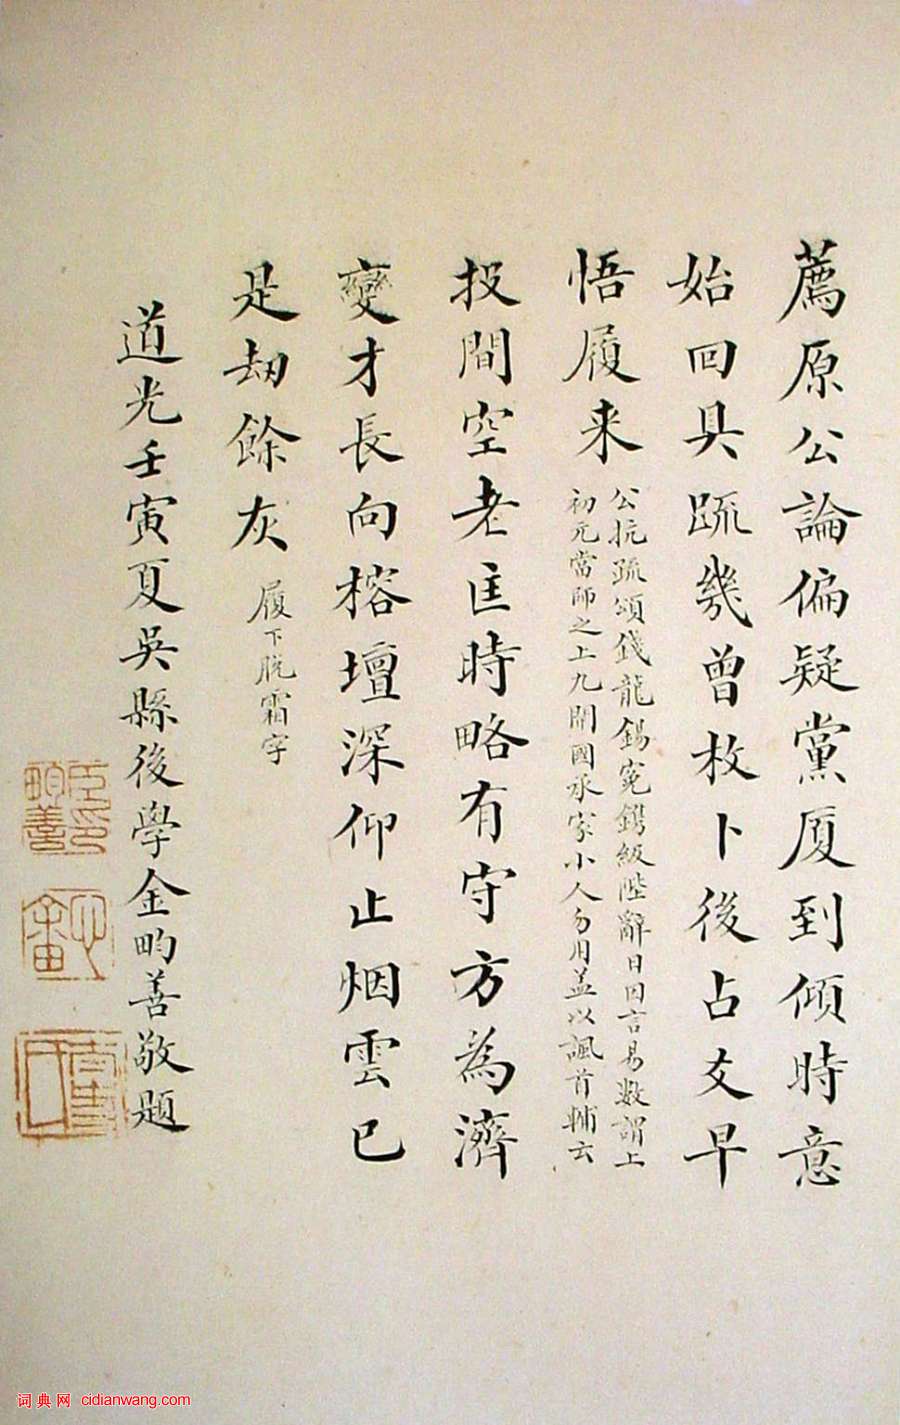 薦原公論偏疑黨厦到傾時意
始回具疏幾曾枚卜後占爻早
悟履来
公抗疏頌錢龍錫寃鐫級陛辭日因言易數謂上
初元當師之上九開國承家小人勿用盖以諷首輔云
投閒空老匡時略有守方為濟
變才長向榕壇深仰止烟雲已
是刼餘灰
履下脱霜字
道光壬寅夏吳縣後學金畇善敬題
臣印畇善
詞典网 cidianwang.com